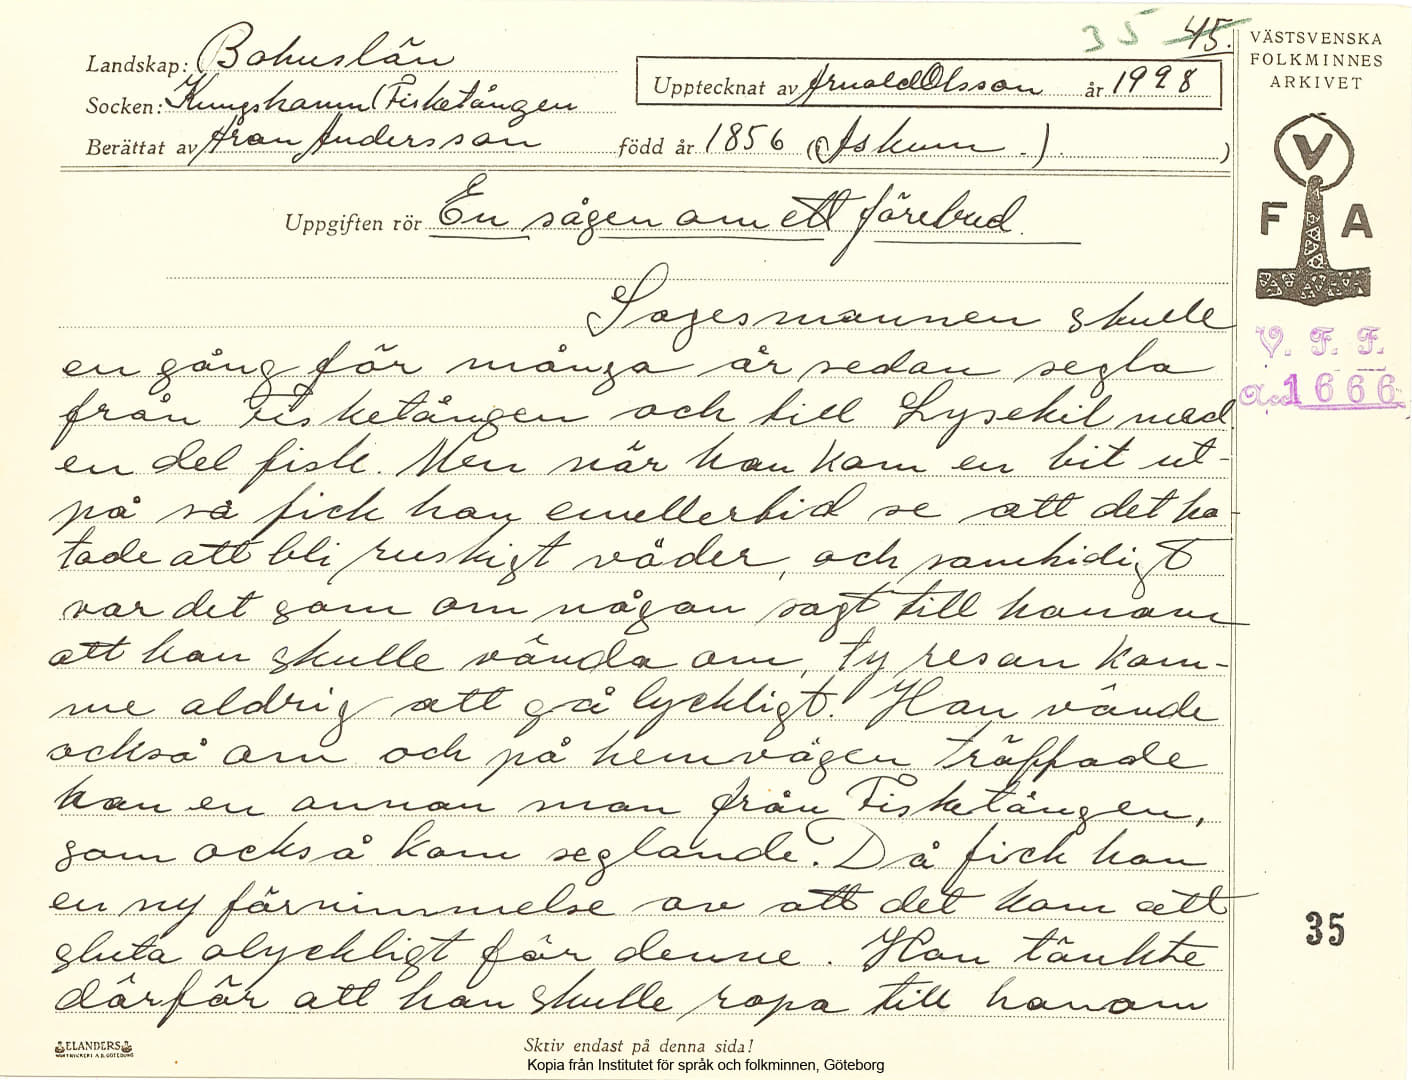 35 45.
Landskap: Bohuslän
Socken: Kungshamn (Fisketången
Berättat av Aron Andersson född år 1856 (i Askum.)
Upptecknat av Arnold Olsson år 1928
VÄSTSVENSKA
FOLKMINNES
ARKIVET
V
F A
V. F. F.
Acc 1666
Uppgiften rör En sägen om ett förebud.
Sagesmannen skulle
en gång för många år sedan segla
från Fisketången och till Lysekil med
en del fisk. Men när han kom en bit ut-
på så fick han emellertid se att det ho-
tade att bli ruskigt väder, och samtidigt
var det som om någon sagt till honom
att han skulle vända om, ty resan kom-
me aldrig att gå lyckligt. Han vände
också om och på hemvägen träffade
han en annan man från Fisketången,
som också kom seglande. Då fick han
en ny förnimmelse av att det kom att
sluta olyckligt för denne. Han tänkte
därför att han skulle ropa till honom
35
ELANDERS
Skriv endast på denna sida!
Kopia från Institutet för språk och folkminnen, Göteborg